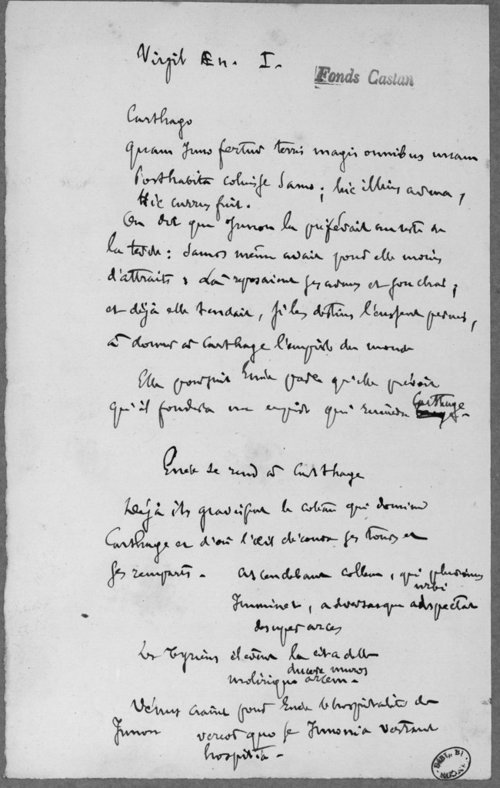 Virgil Æn. I.
Fonds Castan
Carthago
Quam Juno fertur terris magis omnibus unam
Posthabita coluisse Samo; hic illius arma,
Hic currus fuit.
On dit que Junon la préférait au reste de
la terre : Samos même avait pour elle moins
d'attraits ; Là reposaient ses armes et son char ;
et déjà elle tendait, si les destins l'eussent permis,
à donner à Carthage l'empire du monde
Elle poursuit Enée parce qu'elle prévoit
qu'il fondera un empire qui ruinera Carthage
Enée se rend à Carthage
Déjà ils gravissent le coteau qui domine
Carthage et d'où l'œil découvre ses tours et
ses remparts. Ascendebant collem, qui plurimus
urbi
Imminet, adversasque adspectat
desuper arces
Les Tyriens élèvent la citadelle
ducere muros
molirique arcem.
Vénus craint pour Enée l'hospitalité de
Junon vereor quo se Junonia vertant
hospitia.